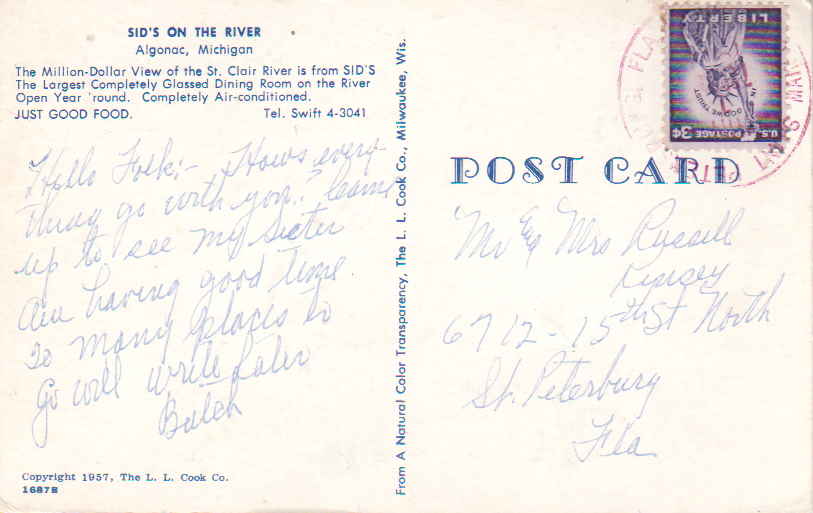 SID'S ON THE RIVER
Algonac, Michigan
The Million-Dollar View of the St. Clair River is from SID'S
The Largest Completely Glassed Dining Room on the River
Open Year 'round. Completely Air-conditioned.
JUST GOOD FOOD. Tel. Swift 4-3041
Hello Folk:- How's every-
thing go with you. Came
up to see my Sister
am having good time
So many places to
Go will write Later
Butch
Copyright 1957, The L. L. Cook Co.
16878
From A Natural Color Transparency, The L. L. Cook Co., Milwaukee, Wis.
LIBERTY
IN GOD WE TRUST
U.S. POSTAGE 3¢
FLA
POST CARD
Mr & Mrs Russell
6712 - 15th St North
St. Peterburg
Fla